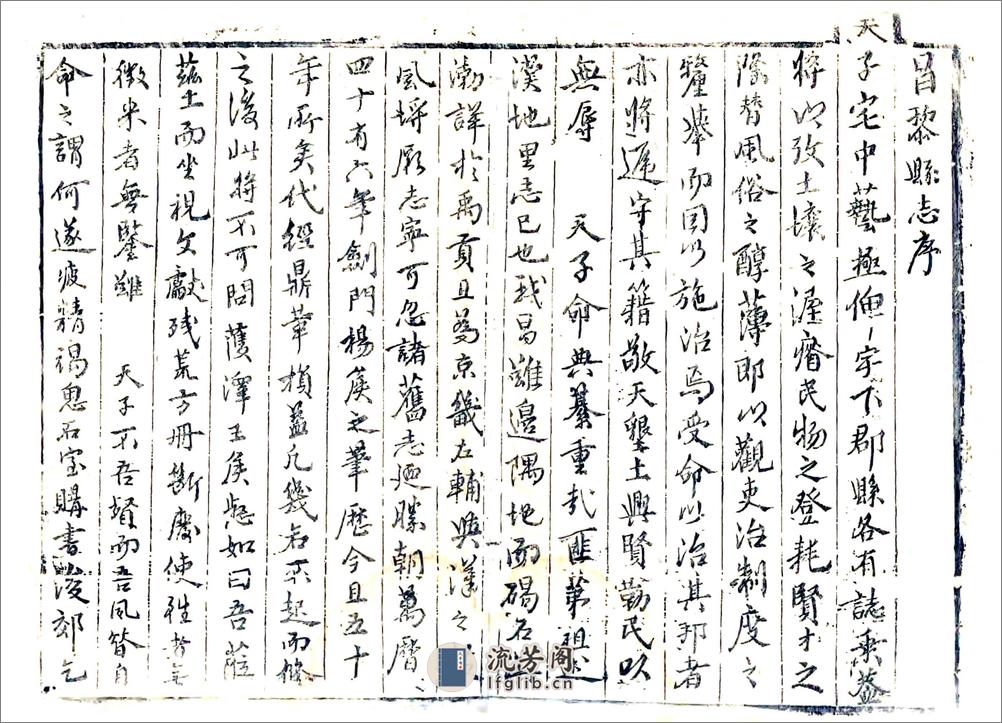 昌黎縣志序
天子宅中藝極俥〻宇下郡縣各有誌乘蓋
將以攷土壤之渥瘠民物之登耗賢才之
隆替風俗之醇薄即以觀吏治制度之
釐舉而因以施治焉受命以治其邦者
亦將遵守其籍敬天墾土興賢勸民以
無辱 天子命典纂重哉匪第祖述
漢地里志已也我昌雖邊隅地而碣石
渤詳於禹貢且為京畿左輔與漢之
風埒厥志寧可忽諸舊志廼勝朝萬曆
四十有六年劍門楊侯之筆歷今且五十
年所矣代經鼎革楨蓋凡幾若不起而修
之後此將不可問濩澤王侯愀如曰吾蒞
茲土而坐視文獻殘荒方冊斷廢使往者無
徵來者無鑒雖 天子不吾督而吾夙昔自
命之謂何遂疲精竭思石室購書浚郊乞
流芳阁
lfglib.cn